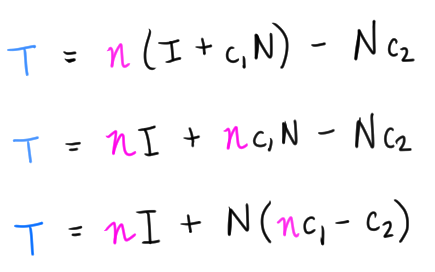 T = n(I + c₁N) - Nc₂
T = nI + nc₁N - Nc₂
T = nI + N(nc₁ - c₂)